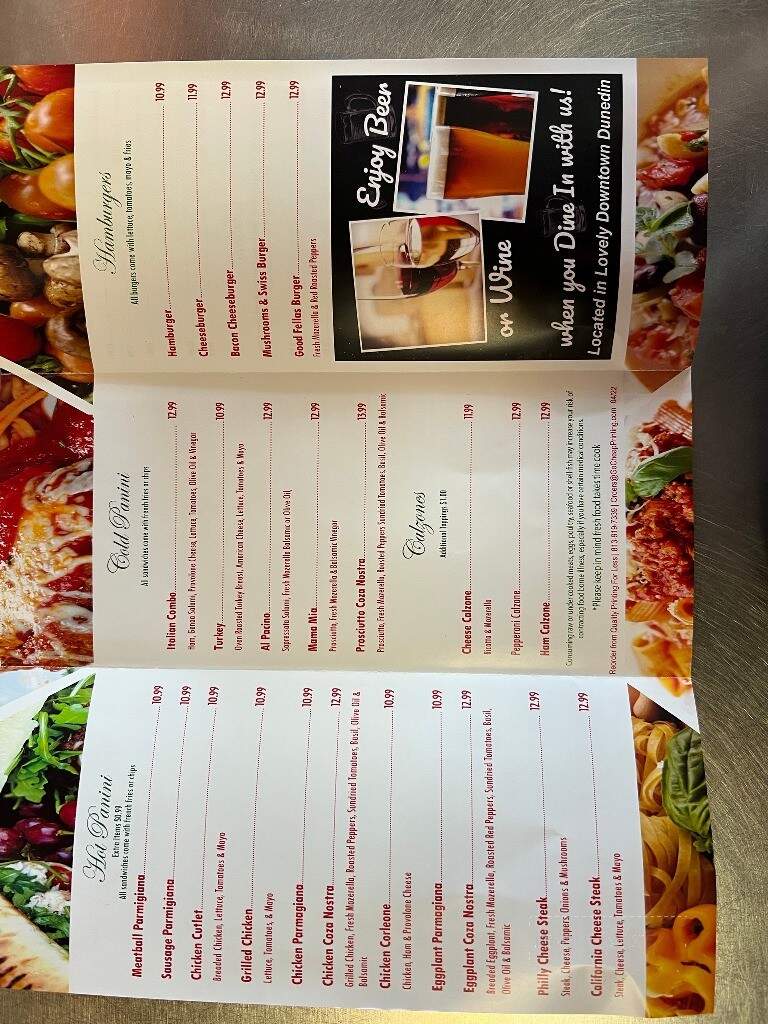 Hot Panini
Extra Items $0.99
All sandwiches come with french fries or chips
Meatball Parmigiana 10.99
Sausage Parmigiana 10.99
Chicken Cutlet 10.99
Breaded Chicken, Lettuce, Tomatoes & Mayo
Grilled Chicken 10.99
Lettuce, Tomatoes, & Mayo
Chicken Parmagiana 10.99
Chicken Coza Nostra 12.99
Grilled Chicken, Fresh Mozerella, Roasted Peppers, Sundried Tomatoes, Basil, Olive Oil &
Balsamic
Chicken Corleone 10.99
Chicken, Ham & Provolone Cheese
Eggplant Parmagiana 10.99
Eggplant Coza Nostra 12.99
Breaded Eggplant, Fresh Mozerella, Roasted Red Peppers, Sundried Tomatoes, Basil,
Olive Oil & Balsamic
Philly Cheese Steak 12.99
Steak, Cheese, Peppers, Onions & Mushrooms
California Cheese Steak 12.99
Steak, Cheese, Lettuce, Tomatoes & Mayo
Cold Panini
All sandwiches come with french fries or chips
Italian Combo 12.99
Ham, Genoa Salami, Provolone Cheese, Lettuce, Tomatoes, Olive Oil & Vinegar
Turkey 10.99
Oven Roasted Turkey Breast, American Cheese, Lettuce, Tomatoes & Mayo
Al Pacino 12.99
Sopressata Salami, Fresh Mozerella Balsamic or Olive Oil,
Mama Mia 12.99
Prosciutto, Fresh Mozerella & Balsamic Vinegar
Prosciutto Coza Nostra 13.99
Prosciutto, Fresh Mozerella, Roasted Peppers Sundried Tomatoes, Basil, Olive Oil & Balsamic
Calzones
Additional Toppings $1.00
Cheese Calzone 11.99
Ricotta & Mozerella
Pepperoni Calzone 12.99
Ham Calzone 12.99
Consuming raw or under cooked meats, eggs, poultry, seafood or shellfish may increase your risk of
contracting food borne illness, especially if you have certain medical conditions.
*Please keep in mind fresh food takes time cook
Reorder from Quality Printing For Less| 813-919-7339 | Orders@GoCheapPrinting.com 0422
Hamburgers
All burgers come with lettuce, tomatoes, mayo & fries
Hamburger 10.99
Cheeseburger 11.99
Bacon Cheeseburger 12.99
Mushrooms & Swiss Burger 12.99
Good Fellas Burger 12.99
Fresh Mozerella & Red Roasted Peppers
Enjoy Beer
or Wine
when you Dine In with us!
Located in Lovely Downtown Dunedin